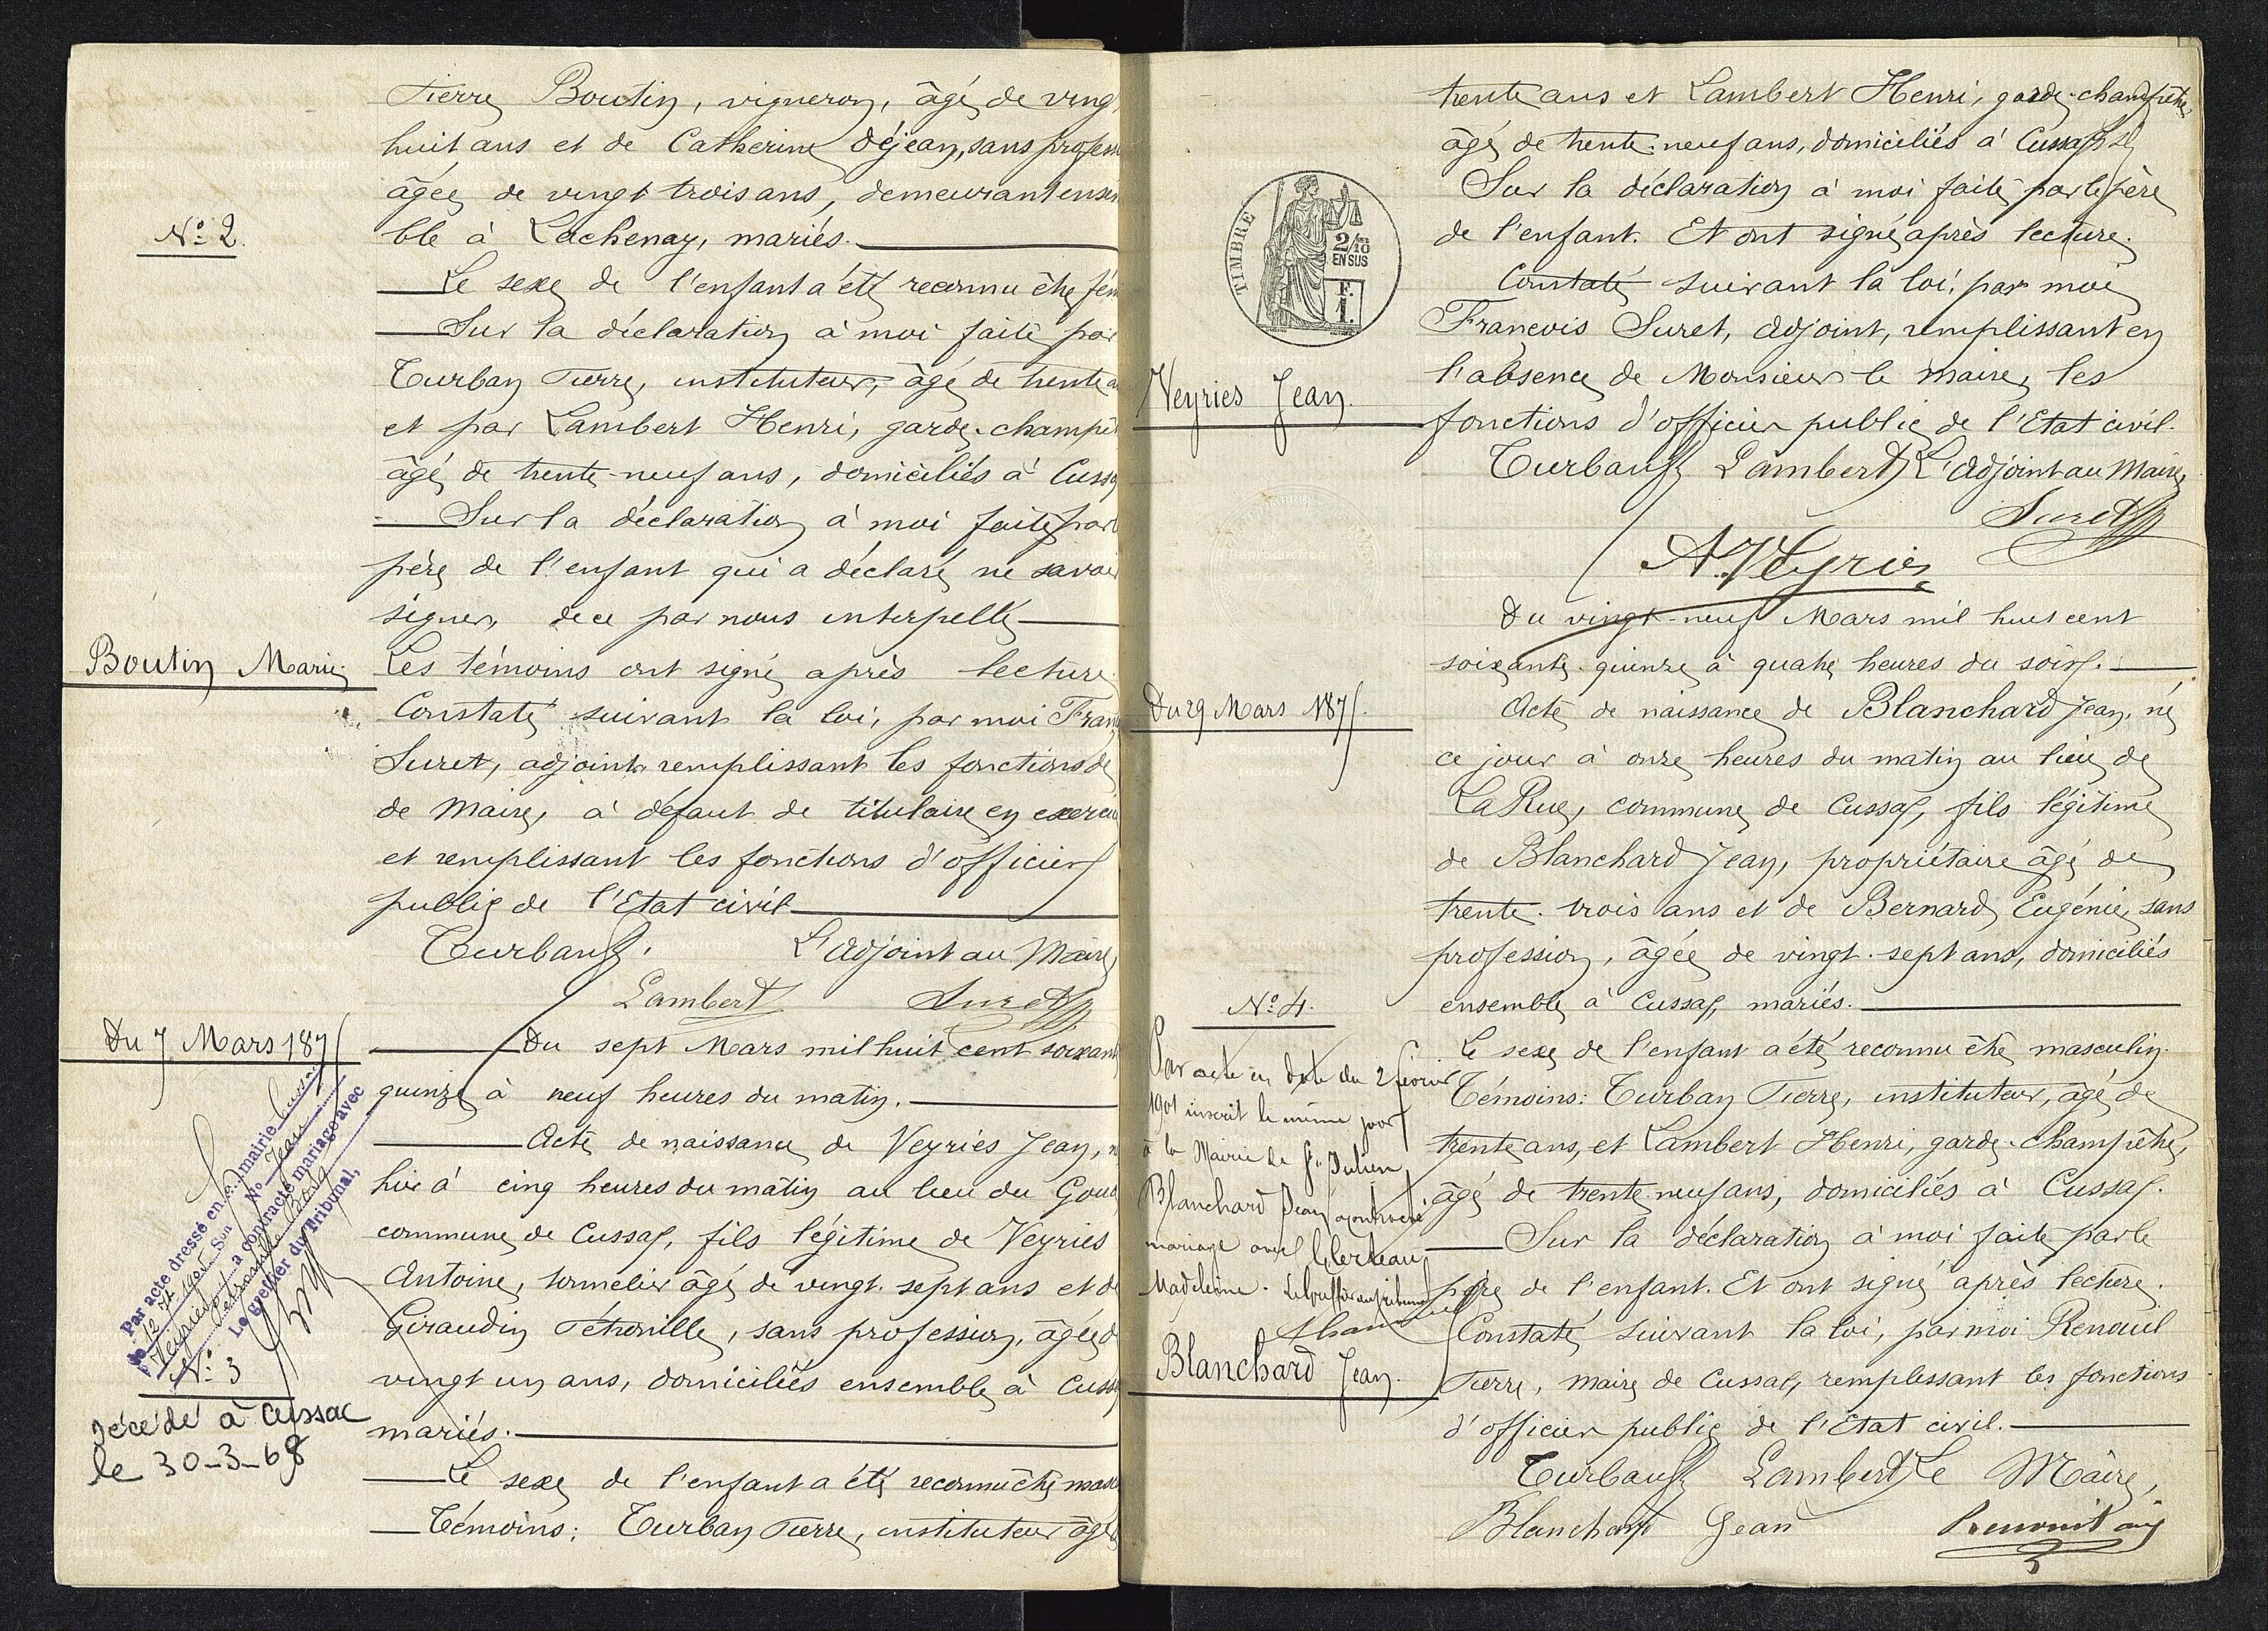 Pierre Boutin, vigneron, âgé de ving
huit ans et de Catherine Déjean, sans profess
âgée de vingt trois ans, demeurant ensem
N° 2.
ble à Lachenay, mariés.
Le sexe de l'enfant a été reconnu être fém
Sur la déclaration à moi faite par
Turban Pierre, instituteur, âgé de trente a
et par Lambert Henri, garde-champêt
âgé de trente-neuf ans, domiciliés à Cussa
Sur la déclaration à moi faite par l
père de l'enfant qui a déclaré ne savoir
signer, de ce par nous interpellé
Boutin Marie
Les témoins ont signé après lecture.
Constaté suivant la loi, par moi Fran
Suret, adjoint remplissant les fonctions de
de Maire, à défaut de titulaire en exercic
et remplissant les fonctions d'officier
public de l'Etat civil
Turban L'adjoint au Maire,
Lambert Suret
Du 7 Mars 1875
Du sept Mars mil huit cent soixant
quinze à neuf heures du matin.
Acte de naissance de Veyries Jean, n
hier à cinq heures du matin au lieu du Gou
commune de Cussac, fils légitime de Veyries
Antoine, tonnelier âgé de vingt-sept ans et de
Giraudin Pétronille, sans profession, âgée d
vingt un ans, domiciliés ensemble à Cuss
mariés.
Le sexe de l'enfant a été reconnu être masc
Témoins: Turban Pierre, instituteur âgé
Par acte dressé en la mairie
le 12 1901 son N°
Veyries Jean a contracté mariage avec
Le greffier du Tribunal,
N° 3
Décédé à Cussac
le 30-3-68
trente ans et Lambert Henri, garde-champêtre,
âgé de trente-neuf ans, domiciliés à Cussac
Sur la déclaration à moi faite par le père
de l'enfant. Et ont signé après lecture.
TIMBRE
2/10
EN SUS
F.
1.
Constaté suivant la loi, par moi
François Suret, adjoint, remplissant en
l'absence de Monsieur le Maire, les
Veyries Jean.
fonctions d'officier public de l'Etat civil.
Turban Lambert L'adjoint au Maire,
Suret
A. Veyries
Du vingt-neuf Mars mil huit cent
soixante-quinze à quatre heures du soir.
Du 29 Mars 1875.
Acte de naissance de Blanchard Jean, né
ce jour à onze heures du matin au lieu de
La Rue, commune de Cussac, fils légitime
de Blanchard Jean, propriétaire âgé de
trente-trois ans et de Bernard Eugénie, sans
profession, âgée de vingt-sept ans, domiciliés
ensemble à Cussac, mariés.
N° 4.
Le sexe de l'enfant a été reconnu être masculin.
Témoins: Turban Pierre, instituteur, âgé de
trente ans, et Lambert Henri, garde-champêtre,
âgé de trente neuf ans, domiciliés à Cussac.
Sur la déclaration à moi faite par le
père de l'enfant. Et ont signé après lecture.
Constaté suivant la loi, par moi Renouil
Pierre, maire de Cussac, remplissant les fonctions
d'officier public de l'Etat civil.
Turban Lambert Le Maire,
Blanchard Jean Renouil ainé
Par acte en date du 2 février
1901 inscrit le même jour
à la Mairie de St Julien
Blanchard Jean a contracté
mariage avec Clerteau
Madeleine. Le Greffier au tribunal
Blanchard Jean.